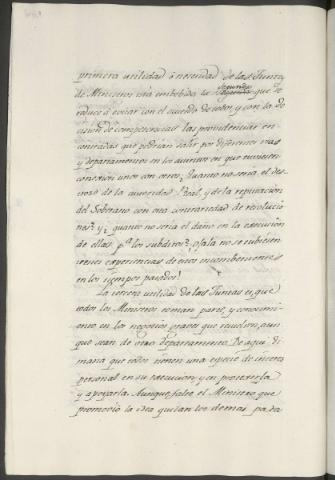 primera utilidad ó necesidad de las Juntas
de Ministros está embebida la segunda que se
reduce á evitar con el acuerdo de todos, y con la de
cision de competencias las providencias en
contradas que podrian salir por diferentes vias
y departamentos en los asuntos en que tuviesen
conexion unos con otros. Quanto no seria el des
credito de la autoridad Real, y de la reputacion
del Soberano con esta contrariedad de resolucio
nes? y quanto no seria el daño en la execucion
de ellas pª los subditos? ojala no se tubiesen
experiencias de estos inconbenientes
en los tiempos pasados!
La tercera utilidad de las Juntas es, que
todos los Ministros toman parte, y conocimi
ento en los negocios graves que resuelven, aun
que sean de otro departamento. De aqui di
mana que todos tienen una especie de interes
personal en su execucion, y en protexerla
y apoyarla. Aunque falte el Ministro que
promovió la idea quedan los demas para